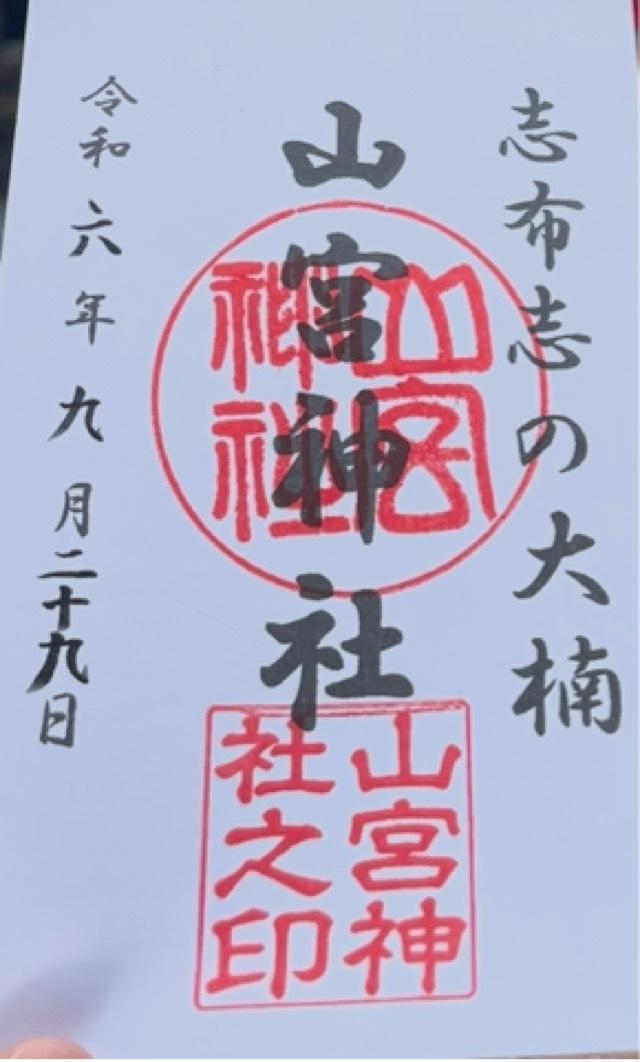 志布志の大楠
山宮神社
山宮神社
山宮神
社之印
令和六年九月二十九日